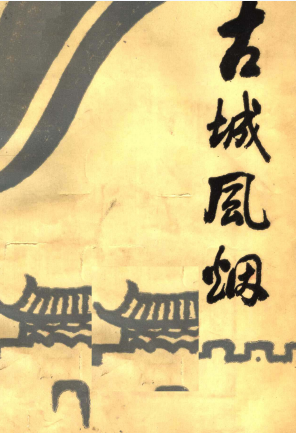 古城風烟